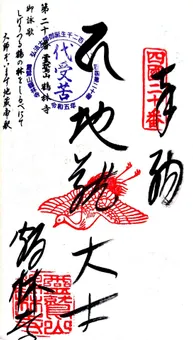 奉納
四国二十番
地蔵大士
代受苦
令和五年
鶴林寺
第二十番 霊鷲山 鶴林寺
御詠歌
しげりつる鶴の林をしるべにて
大師ぞいます地蔵帝釈